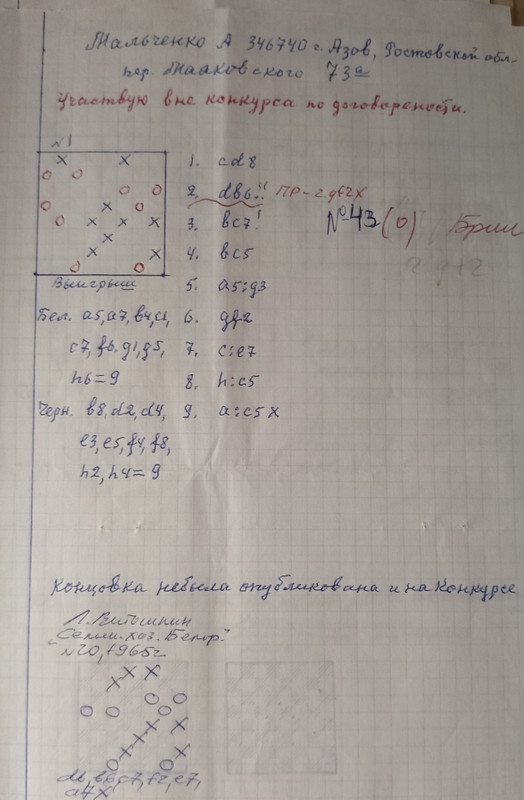 Мальченко А 346740 г. Азов, Ростовской обл.
пер. Маяковского 73а
Участвую вне конкурса по договорености.
№1
1. cd8
2. db6!!
3. bc7!
№43 (0)
4. bc5
Выигрыш
5. a5:g3
Бел. a5, a7, b4, c1,
6. gf2
c7, f6, g1, g5,
7. c:e7
h6=9
8. h:c5
Черн. b8, d2, d4,
9. a:c5 x
e3, e5, f4, f8,
h2, h4=9
Концовка небыла опубликована и на конкурсе
Л. Витошкин
№20, 1965г
db, b6, c7, f2, e7,
a7x